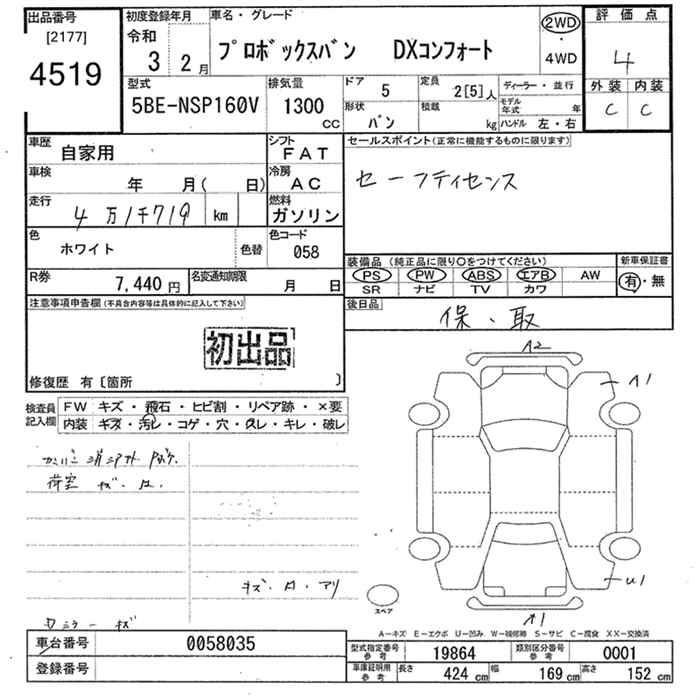 出品番号 [2177] 4519
初度登録年月 令和 3年 2月
車名・グレード プロボックスバン DXコンフォート
2WD ・ 4WD
評価点 4
外装 C 内装 C
型式 5BE-NSP160V
排気量 1300 CC
ドア 5 定員 2[5]人
形状 バン 積載 kg
ディーラー・並行
モデル年式 年
ハンドル 左・右
車歴 自家用
シフト FAT
車検 年 月( 日)
冷房 AC
走行 4万1千719 km
燃料 ガソリン
色 ホワイト 色替
色コード 058
R券 7,440円
名変通知期限 月 日
セールスポイント(正常に機能するものに限ります)
セーフティセンス
装備品(純正品に限り○をつけてください)
PS PW ABS エアB AW
SR ナビ TV カワ
新車保証書 有・無
後日品 保・取
注意事項申告欄(不具合内容等は具体的に記入して下さい)
初出品
修復歴 有〔箇所 〕
検査員記入欄
FW キズ・飛石・ヒビ割・リペア跡・×要
内装 キズ・汚レ・コゲ・穴・スレ・キレ・破レ
荷室 キズ・
A2
A1
U1
A1
スペア
A-キズ E-エクボ U-凹み W-補修跡 S-サビ C-腐食 XX-交換済
車台番号 0058035
登録番号
型式指定番号参考 19864
類別区分番号参考 0001
車庫証明用参考 長さ 424cm 幅 169cm 高さ 152cm